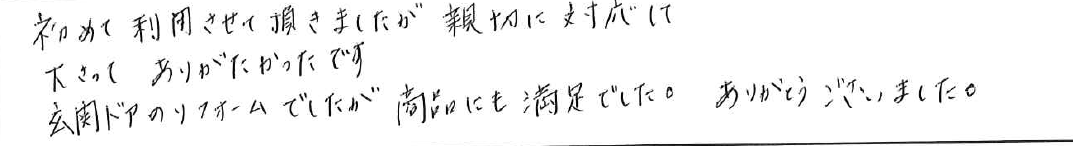 初めて利用させて頂きましたが親切に対応して
下さって ありがたかったです
玄関ドアのリフォームでしたが商品にも満足でした。 ありがとうございました。